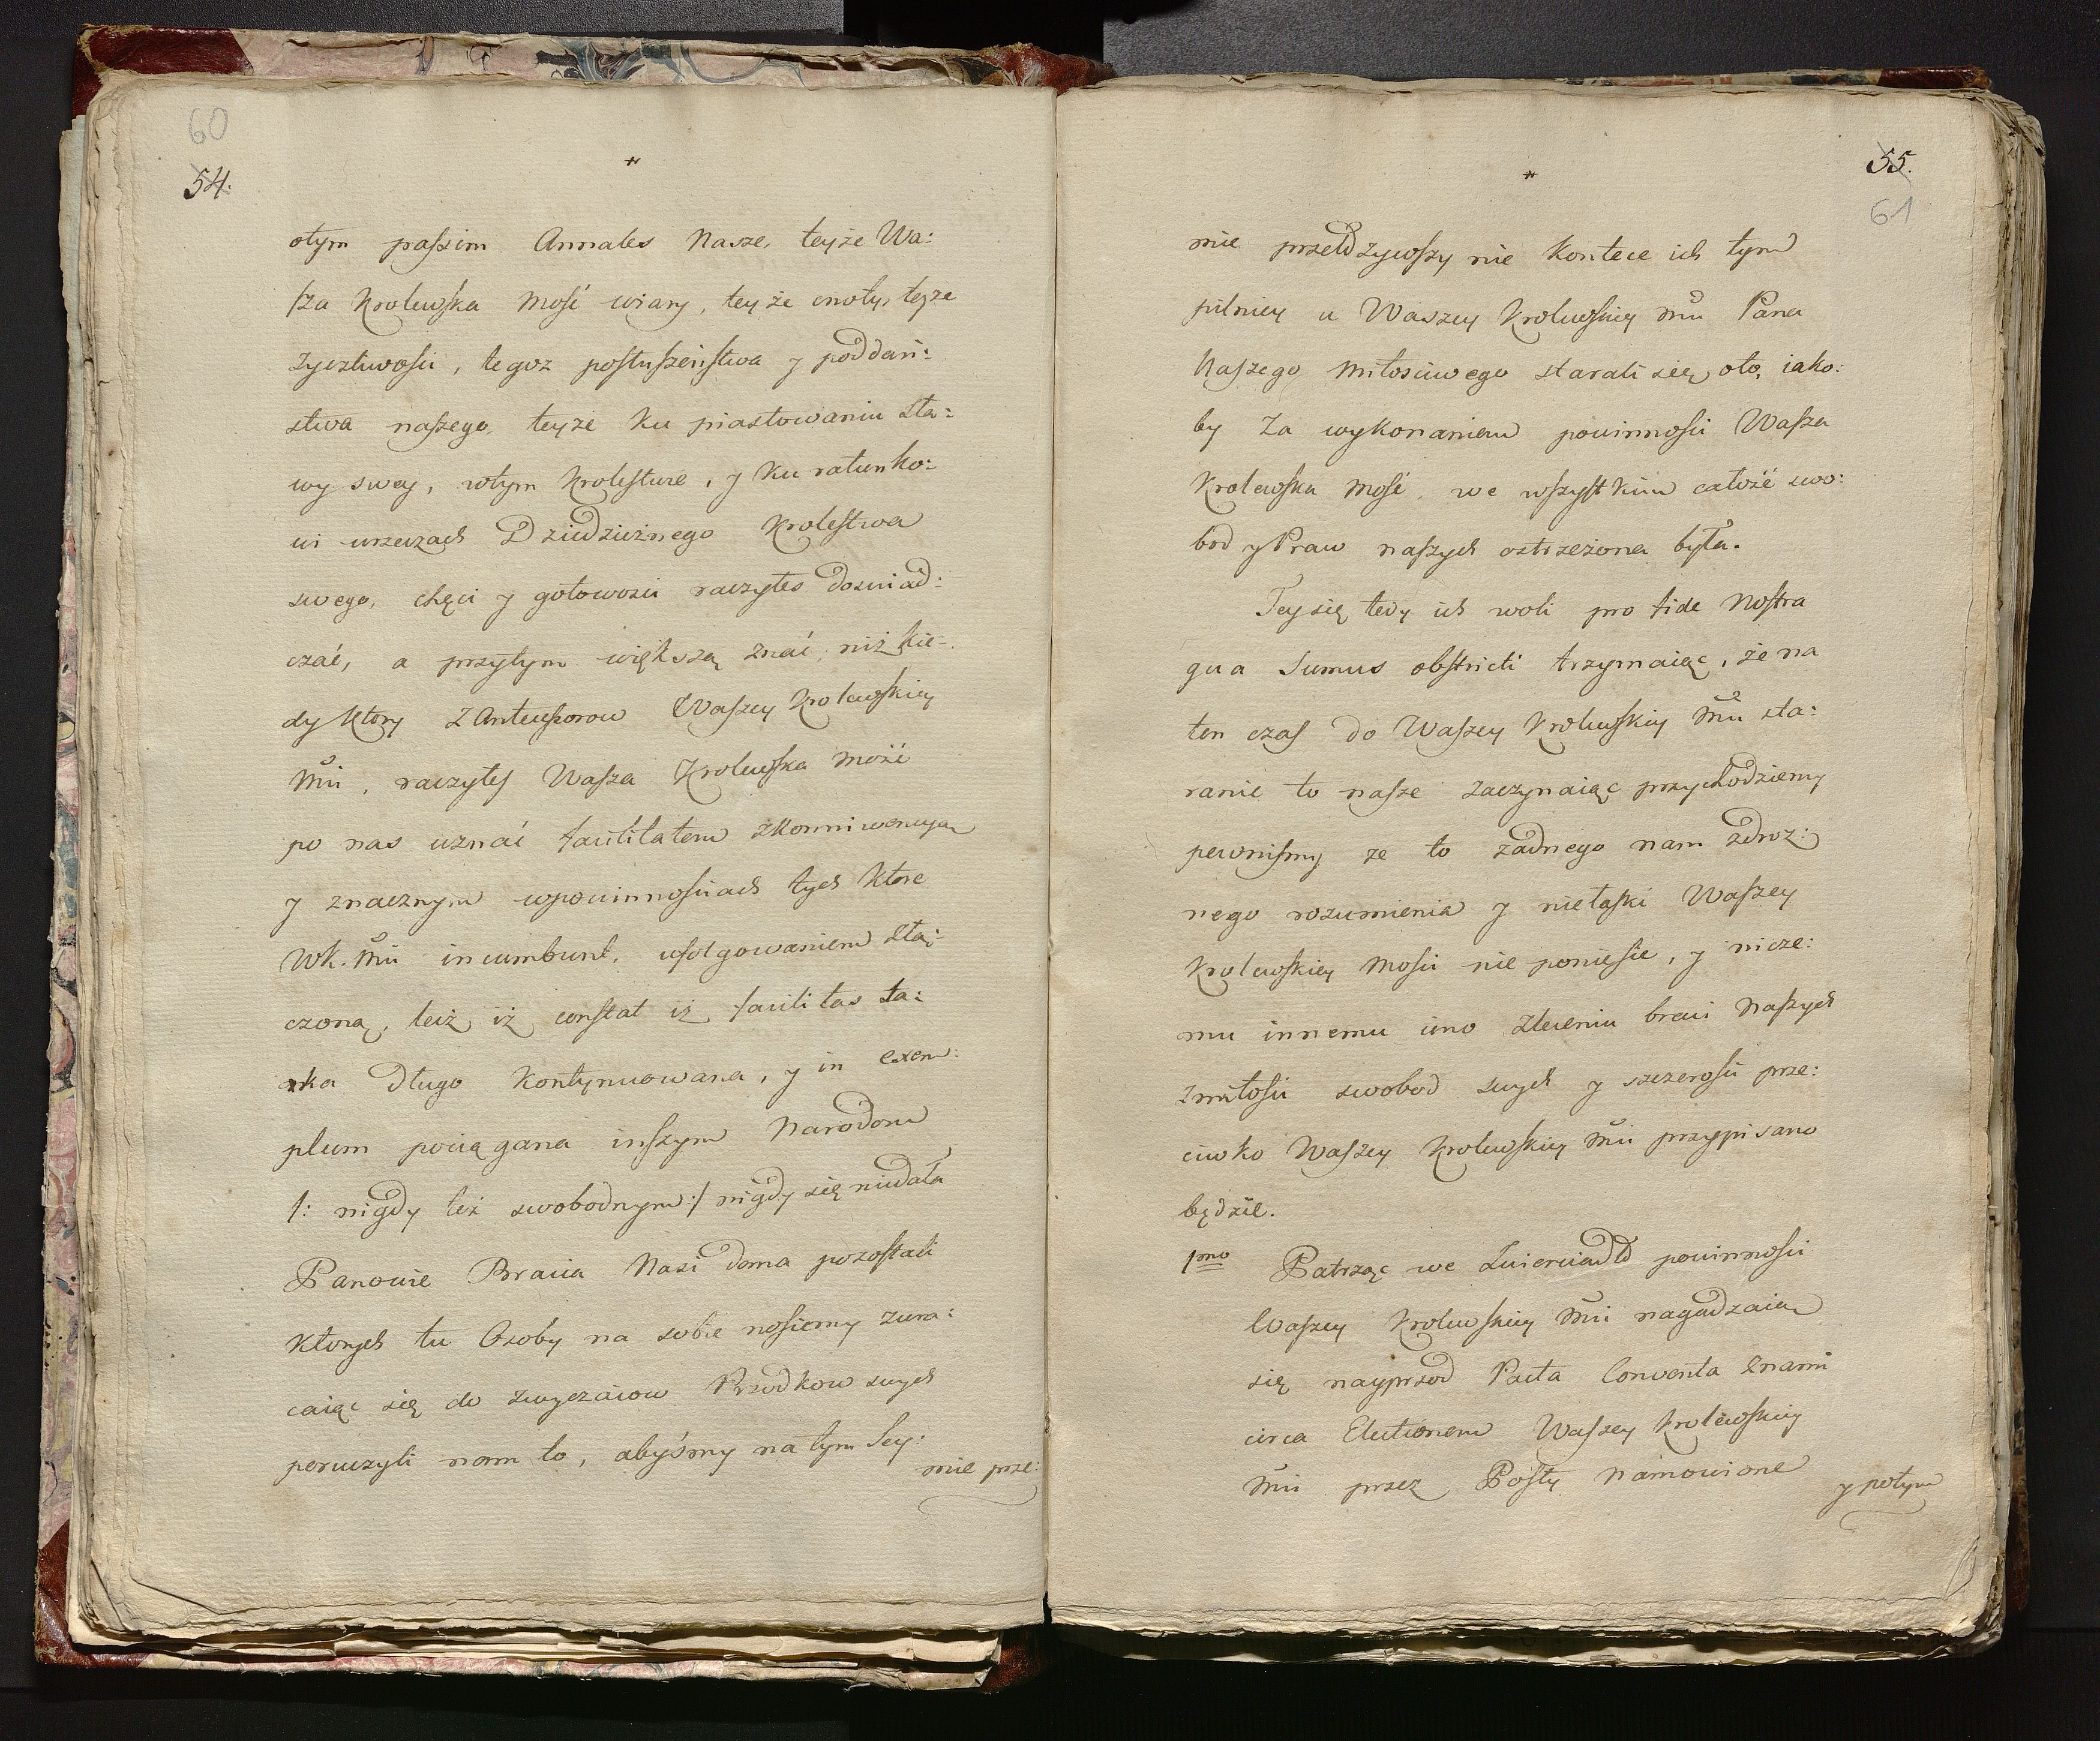 60
54.
otym passim Annales Nasze, teyże Wa:
sza Krolewska Mość wiary, teyże cnoty, teyze
życzliwosci, tegoz posłuszeństwa y poddań:
stwa naszego, teyże ku piastowaniu sta:
wy swey, wtym Krolestwie, y ku ratunko:
wi wrzeczach Dziedzicznego Krolestwa
swego, chęci y gotowosci raczyłes doswiad:
czać, a przytym większą znać, niż kie:
dy ktory z Antecessorow Waszey Krolewskiey
Mci, raczyłeś Wasza Krolewska Mość
po nas uznać facilitatem zkonniwencyą
y znacznym wpowinnościach tych ktore
WK. Mci incumbunt, uffolgowaniem złą:
czoną, lecz iż constat iż facilitas ta:
ka długo kontynuowana, y in exem:
plum pociągana inszym Narodom
/: nigdy też swobodnym :/ nigdy się nieudała
Panowie Bracia Nasi doma pozostali
ktorych tu Osoby na sobie nosiemy zwra:
caiąc się do zwyczaiow Przodkow swych
poruczyli nam to, abyśmy na tym Sey:
mie prze:
55.
61
mie przedżywszy nie kontece ich tym
pilniey u Waszey Krolewskiey Mci Pana
Naszego Miłosciwego starali się oto, iako:
by za wykonaniem powinnosci Wasza
Krolewska Mość, we wszystkim całość swo:
bod y Praw naszych ostrzeżona była.
Tey się tedy ich woli pro fide Nostra
qua Sumus obstricti trzymaiąc, że na
ten czas do Waszey Krolewskiey Mci sta:
ranie to nasze zaczynaiąc przychodziemy
pewnismy ze to żadnego nam zdroz:
nego rozumienia y niełaski Waszey
Krolewskiey Mosci nie poniesie, y nicze:
mu innemu ieno zleceniu braci Naszych
zmiłosci swobod swych y szczerosci prze:
ciwko Waszey Krolewskiey Mci przypisano
będzie.
1mo Patrząc we Zwierciadło powinnosci
Waszey Krolewskiey Mci nagadzaią
się nayprzod Pacta Conventa znami
circa Electionem Waszey Krolewskiey
Mci przez Posły Namowione
y potym